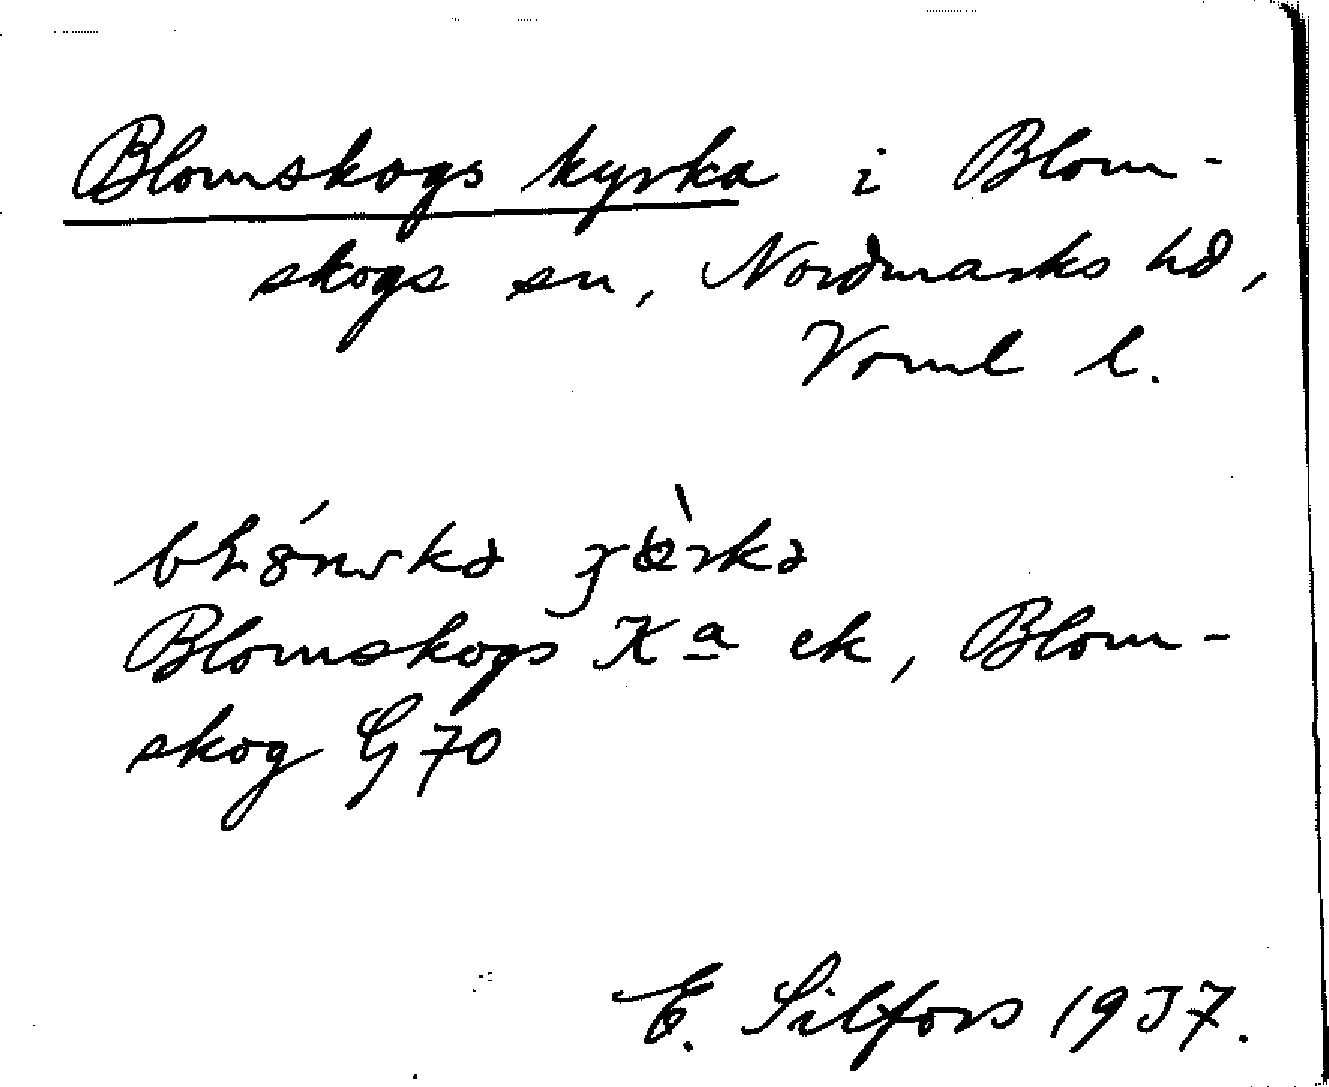 Blomskogs kyrka i Blom-
skogs sn, Nordmarks hd,
Verml l.
Blomskogs Ka ek, Blom-
skog G 70
E. Silfors 1937.